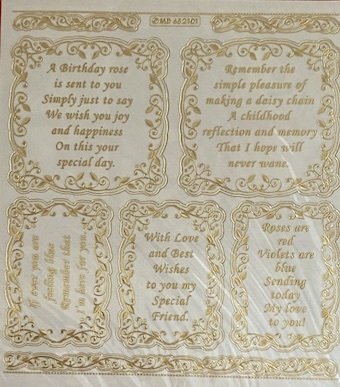 © MD 682101
A Birthday rose
is sent to you
Simply just to say
We wish you joy
and happiness
On this your
special day.
Remember the
simple pleasure of
making a daisy chain
A childhood
reflection and memory
That I hope will
never wane.
If ever you are
feeling blue
Remember that
I'm here for you.
With Love
and Best
Wishes
to you my
Special
Friend.
Roses are
red
Violets are
blue
Sending
today
My love
to you!